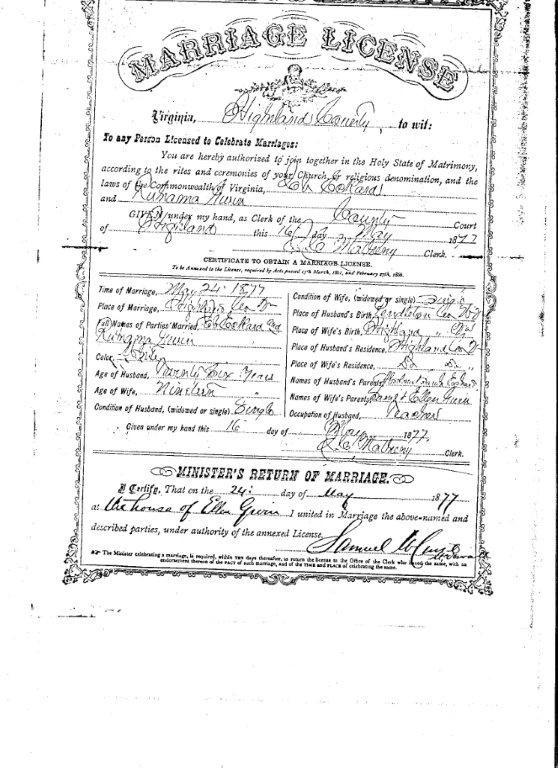 MARRIAGE LICENSE
Virginia, Highland County, to wit:
To any Person Licensed to Celebrate Marriages:
You are hereby authorised to join together in the Holy State of Matrimony,
according to the rites and ceremonies of your Church or religious denomination, and the
laws of the Commonwealth of Virginia, Eckard
and
GIVEN under my hand, as Clerk of the County Court
of Highland this 16 day May 1877
Clerk.
CERTIFICATE TO OBTAIN A MARRIAGE LICENSE.
To be Annexed to the License, required by Acts passed 15th March, 1861, and February 27th, 1866.
Time of Marriage, May 24 1877
Place of Marriage, Highland Co
Full Names of Parties Married, Eckard and
Color,
Age of Husband, Twenty Four Years
Age of Wife, Nineteen
Condition of Husband, (widowed or single) Single
Condition of Wife, (widowed or single) Single
Place of Husband's Birth, Pendleton Co
Place of Wife's Birth, Highland " "
Place of Husband's Residence, Highland Co
Place of Wife's Residence, Do Do
Names of Husband's Parents
Names of Wife's Parents & Ellen
Occupation of Husband,
Given under my hand this 16 day of May 1877,
Clerk.
MINISTER'S RETURN OF MARRIAGE.
I Certify, That on the 24 day of May 1877
at the house of Ellen I united in Marriage the above-named and
described parties, under authority of the annexed License.
Samuel
The Minister celebrating a marriage, is required, within ten days thereafter, to return the license to the Office of the Clerk who issued the same, with an
endorsement thereon of the FACT of such marriage, and of the TIME and PLACE of celebrating the same.